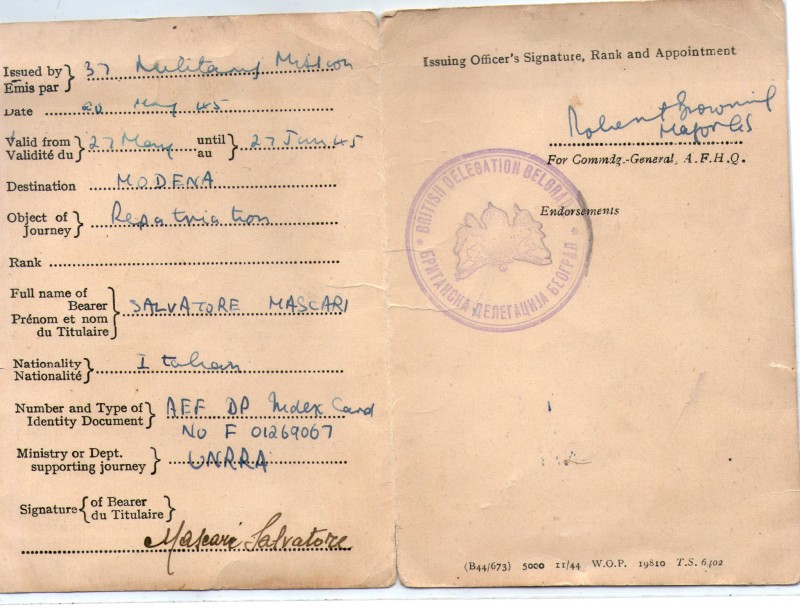 Issued by } 37 Military Mission
Emis par }
Date 20 May 45
Valid from } 27 May until } 27 Jun 45
Validité du } au }
Destination MODENA
Object of } Repatriation
Journey }
Rank
Full name of
Bearer } SALVATORE MASCARI
Prénom et nom
du Titulaire
Nationality } Italian
Nationalité }
Number and Type of } AEF DP Index Card
Identity Document } No F 01269067
Ministry or Dept. } UNRRA
supporting journey }
Signature { of Bearer }
{ du Titulaire }
Mascari Salvatore
Issuing Officer's Signature, Rank and Appointment
Robert Browning
Major GS
For Commdg.-General, A.F.H.Q.
* BRITISH DELEGATION BELGRA
* БРИТАНСКА ДЕЛЕГАЦИЈА БЕОГРАД *
Endorsements
(B44/673) 5000 11/44 W.O.P. 19810 T.S. 6402